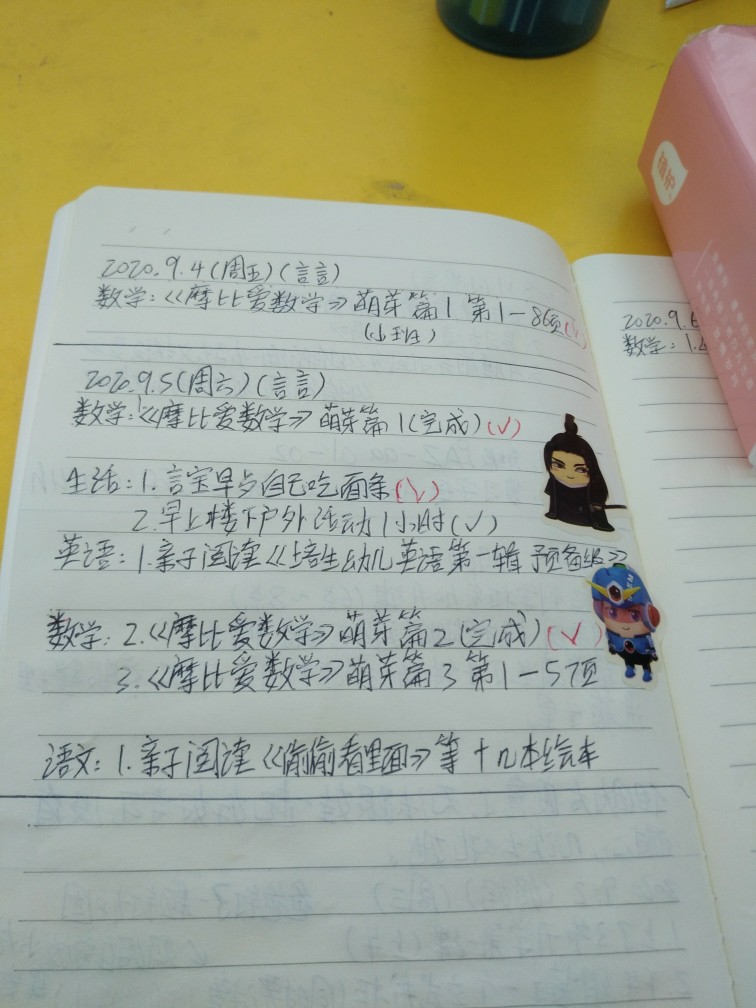 2020.9.4(周五)(言言)
数学:《摩比爱数学》萌芽篇1 第1—86页(√)
(小班)
2020.9.5(周六)(言言)
数学:《摩比爱数学》萌芽篇1(完成)(√)
生活:1.言宝早与自己吃面条(√)
2.早上楼下户外活动1小时(√)
英语:1.亲子阅读《培生幼儿英语第一辑 预备级》
数学:2.《摩比爱数学》萌芽篇2(完成)(√)
3.《摩比爱数学》萌芽篇3 第1—57页
语文:1.亲子阅读《偷偷看里面》等十几本绘本
2020.9.6
数学:1.
植护